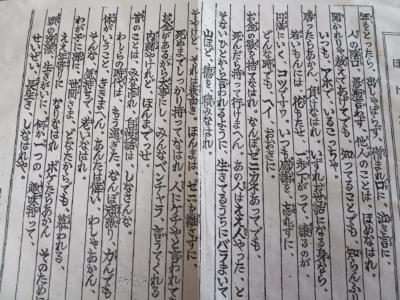 年をとったら 出しゃばらず、憎まれ口に 泣き言に
人の陰口、愚痴言わず、他人のことは ほめなはれ
聞かれりゃ教えてあげても、知ってることでも 知らんふり
いつも、アホで、いるこっちゃ
勝ったらあかん、負けなはれ いずれお世話になる身なら、
若いもんには 花もたせ 一歩下がって 譲るのが
円満に、いく コツですわ、いつも感謝を 忘れずに
どんな時でも、へイ、おおきに、
お金の欲を 捨てなはれ、なんぼゼニカネあってでも、
死んだら持って行けまへん あの人はええ人やった、と
そないひとから 言われるように、生きてるうちに バラまいて
山ほど、徳を、積みなはれ
そやけど、それは表向き、ほんまは ゼニを離さずに、
死ぬまでしっかり 持ってなはれ、人にケチやと言われても
お金があるから大事にし、みんな、べンチャラ、言うてくれる
内緒やけれど、ほんまでっせ。
昔のことは、みな忘れ、自慢話は しなさんな、
わしらの時代は、もう過ぎた、なんぼ頑張り、力んでも
体がいうこと、きまへん、あんたは偉い、わしゃあかん、
そんな、気持ちで、おりなはれ
わが子に、孫に、世間さま、どなたからでも、慕われる、
ええ年寄りに なりなはれ ボケたらあかん そのため
頭の洗濯、生きがいに、何か一つの 趣味持って、
せいぜい、長生き しなはれや。